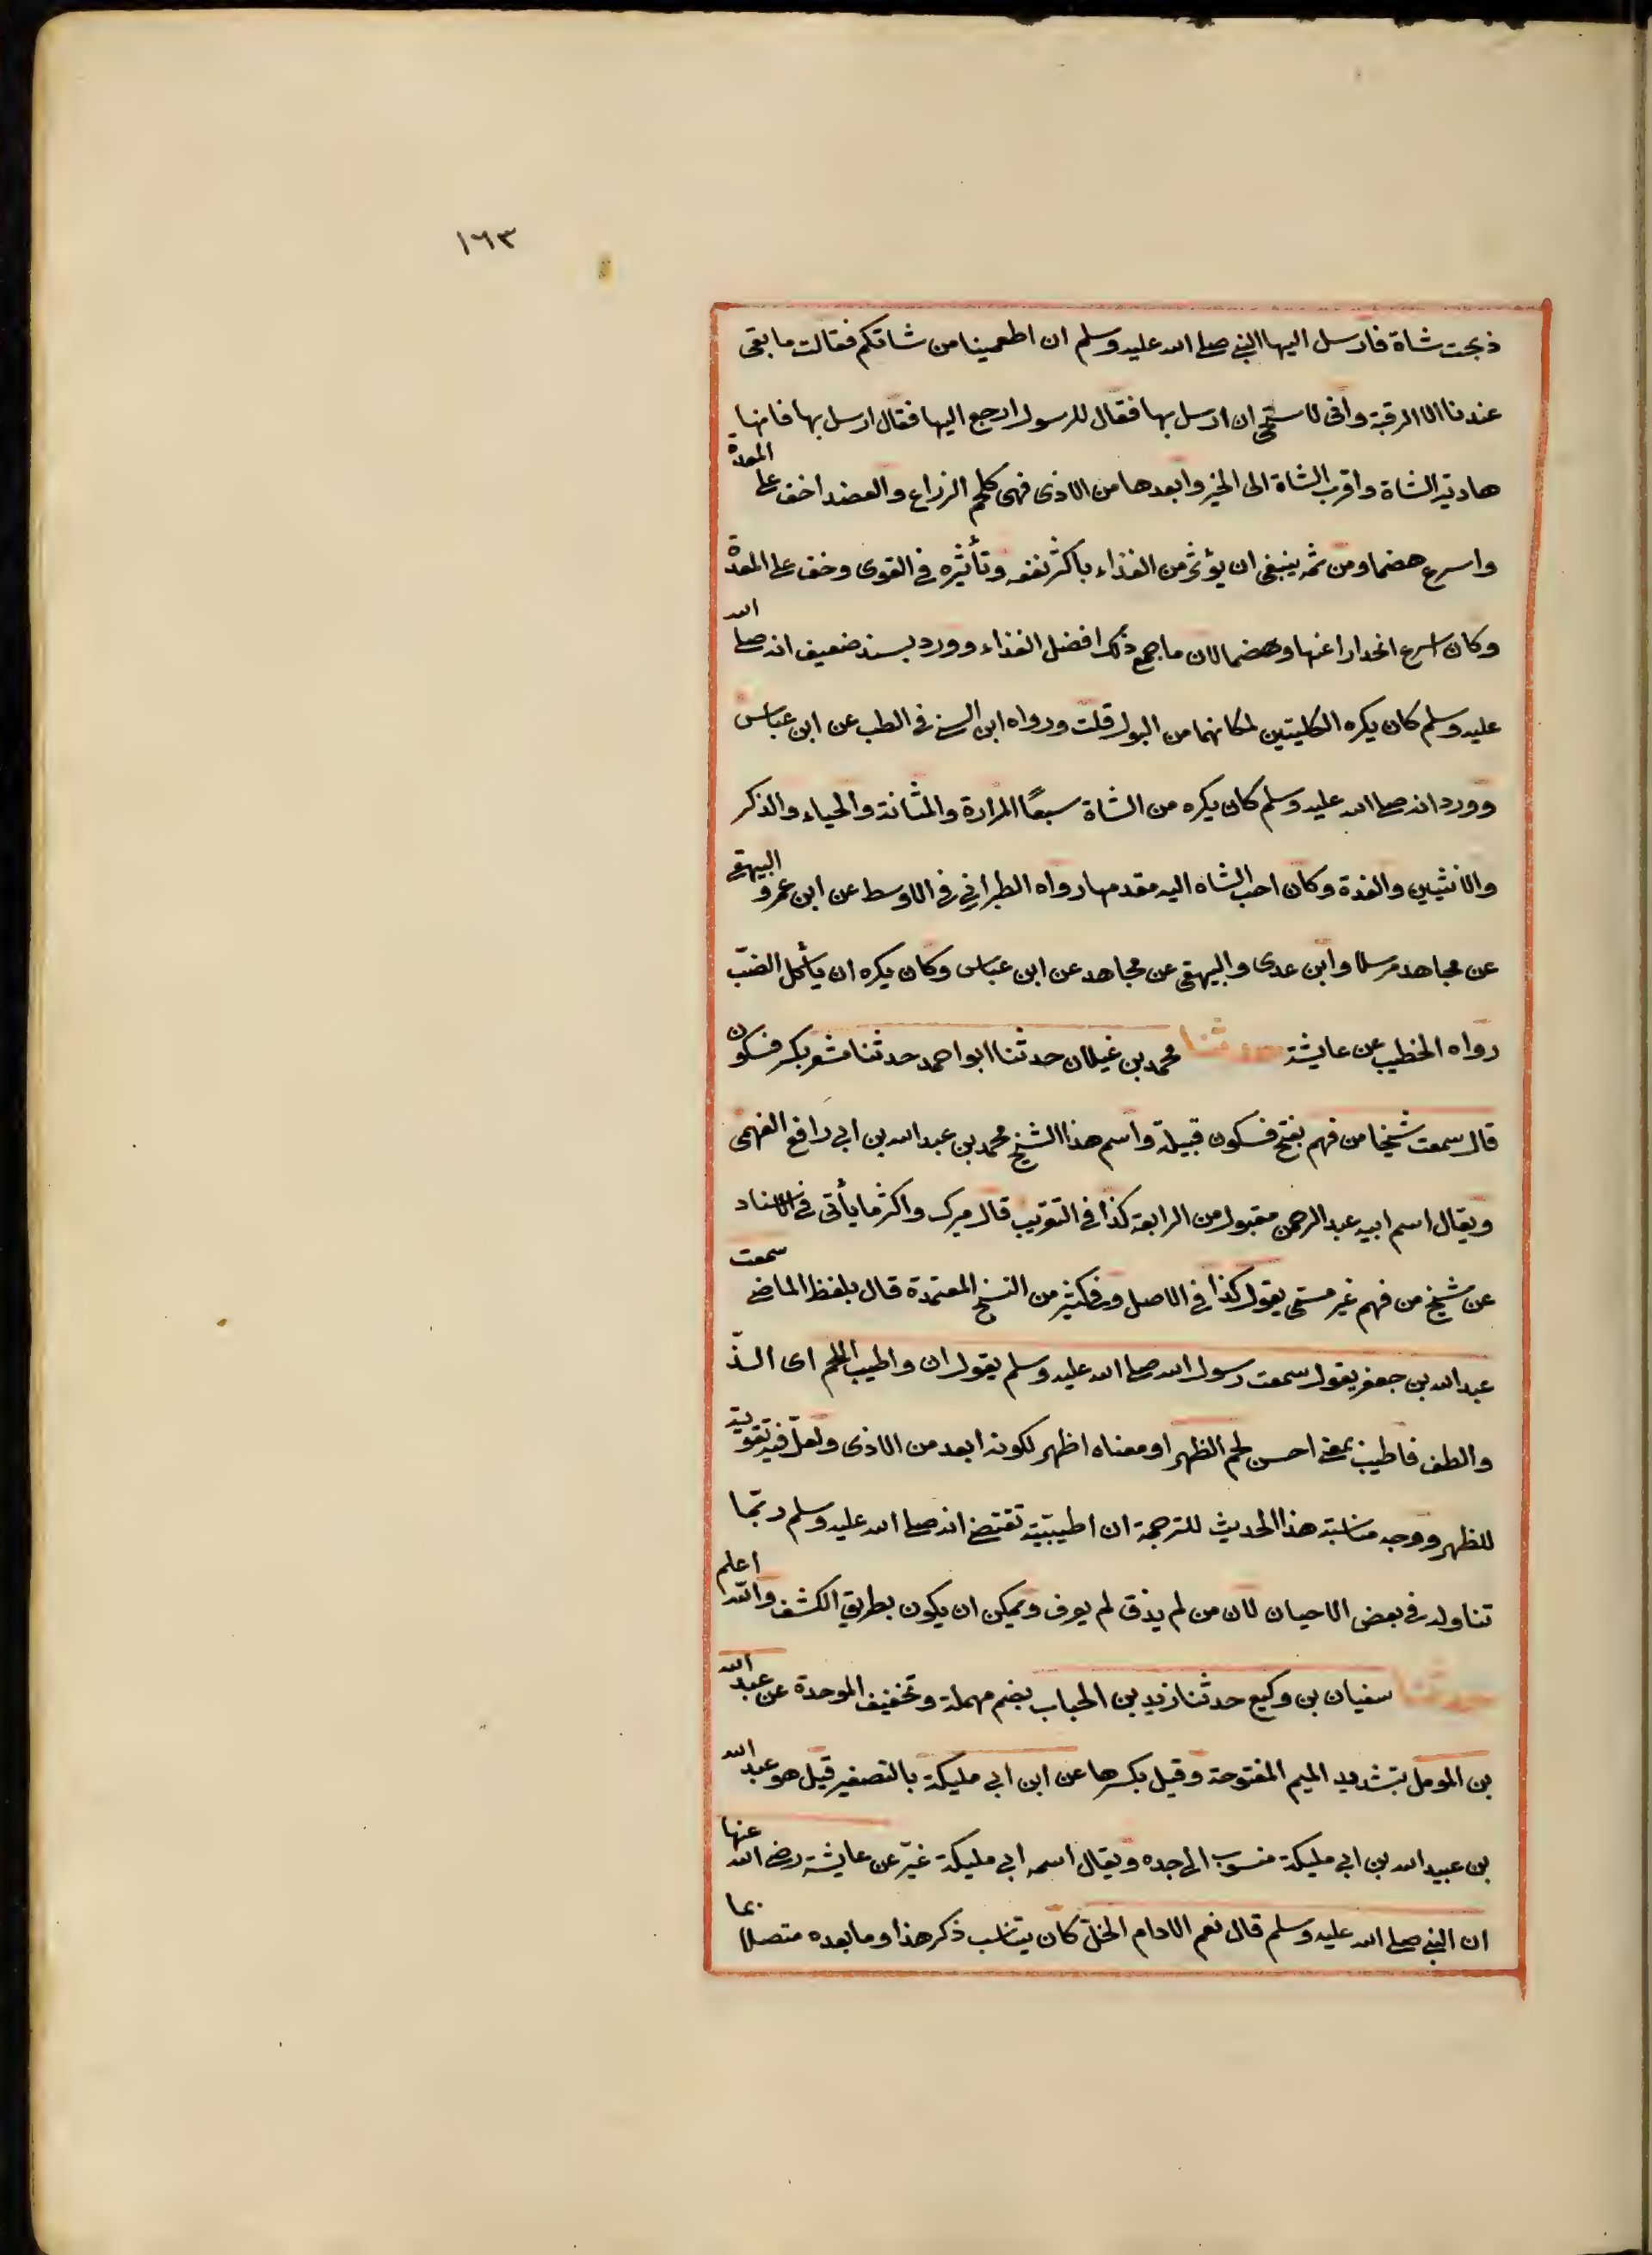 ١٦٣
ذبحت شاة فارسل اليها النبي صلى الله عليه وسلم ان اطعمينا من شاتكم فقالت ما بقى
عندنا الا الرقبة وانى لاستحى ان ارسل بها فقال للرسول ارجع اليها فقال ارسل بها فانها
هادية الشاة واقرب الشاة الى الخير وابعدها من الاذى فهى كلحم الزراع والعضد اخف على المعدة
واسرع هضما ومن ثمه ينبغى ان يؤثر من الغذاء باكثر نفعه وتأثيره فى القوى وخف على المعدة
وكان اسرع انحدارا عنها وهضما لان ما جمع ذلك افضل الغذاء وورد بسند ضعيف انه صلى الله
عليه وسلم كان يكره الكليتين لمكانهما من البول قلت ورواه ابن السنى فى الطب عن ابن عباس
وورد انه صلى الله عليه وسلم كان يكره من الشاة سبعًا المرارة والمثانة والحياء والذكر
والانثيين والغدة وكان احب الشاه اليه مقدمها رواه الطبرانى فى الاوسط عن ابن عمر والبيهقى
عن مجاهد مرسلا وابن عدى والبيهقى عن مجاهد عن ابن عباس وكان يكره ان يأكل الضبّ
رواه الخطيب عن عايشة حدثنا محمد بن غيلان حدثنا ابو احمد حدثنا مسعر بكسر فسكون
قال سمعت شيخا من فهم بفتح فسكون قبيلة واسم هذا الشيخ محمد بن عبد الله بن ابى رافع الفهمى
ويقال اسم ابيه عبد الرحمن مقبول من الرابعة كذا فى التقريب قال ميرك واكثر ما يأتى فى الاسناد
عن شيخ من فهم غير مسمى يقول كذا فى الاصل وفى كثير من النسخ المعتمدة قال بلفظ الماضى سمعت
عبد الله بن جعفر يقول سمعت رسول الله صلى الله عليه وسلم يقول ان واطيب اللحم اى الذّ
والطف فاطيب بمعنى احسن لحم الظهر او معناه اظهر لكونه ابعد من الاذى ولعلّ فيه تقوية
للظهر ووجه مناسبة هذا الحديث للترجمة ان اطيبيّته تقتضى انه صلى الله عليه وسلم ربّما
تناوله فى بعض الاحيان لان من لم يذق لم يعرف ويمكن ان يكون بطريق الكشف والله اعلم
حدثنا سفيان بن وكيع حدثنا زيد بن الحباب بضم مهملة وتخفيف الموحدة عن عبد الله
بن المومل بتشديد الميم المفتوحة وقيل بكسرها عن ابن ابى مليكة بالتصغير قيل هو عبد الله
بن عبيد الله بن ابى مليكة منسوب الى جده ويقال اسم ابى مليكة غيّر عن عايشة رضى الله عنها
ان النبى صلى الله عليه وسلم قال نعم الادام الخلّ كان يناسب ذكر هذا وما بعده متصلا بما